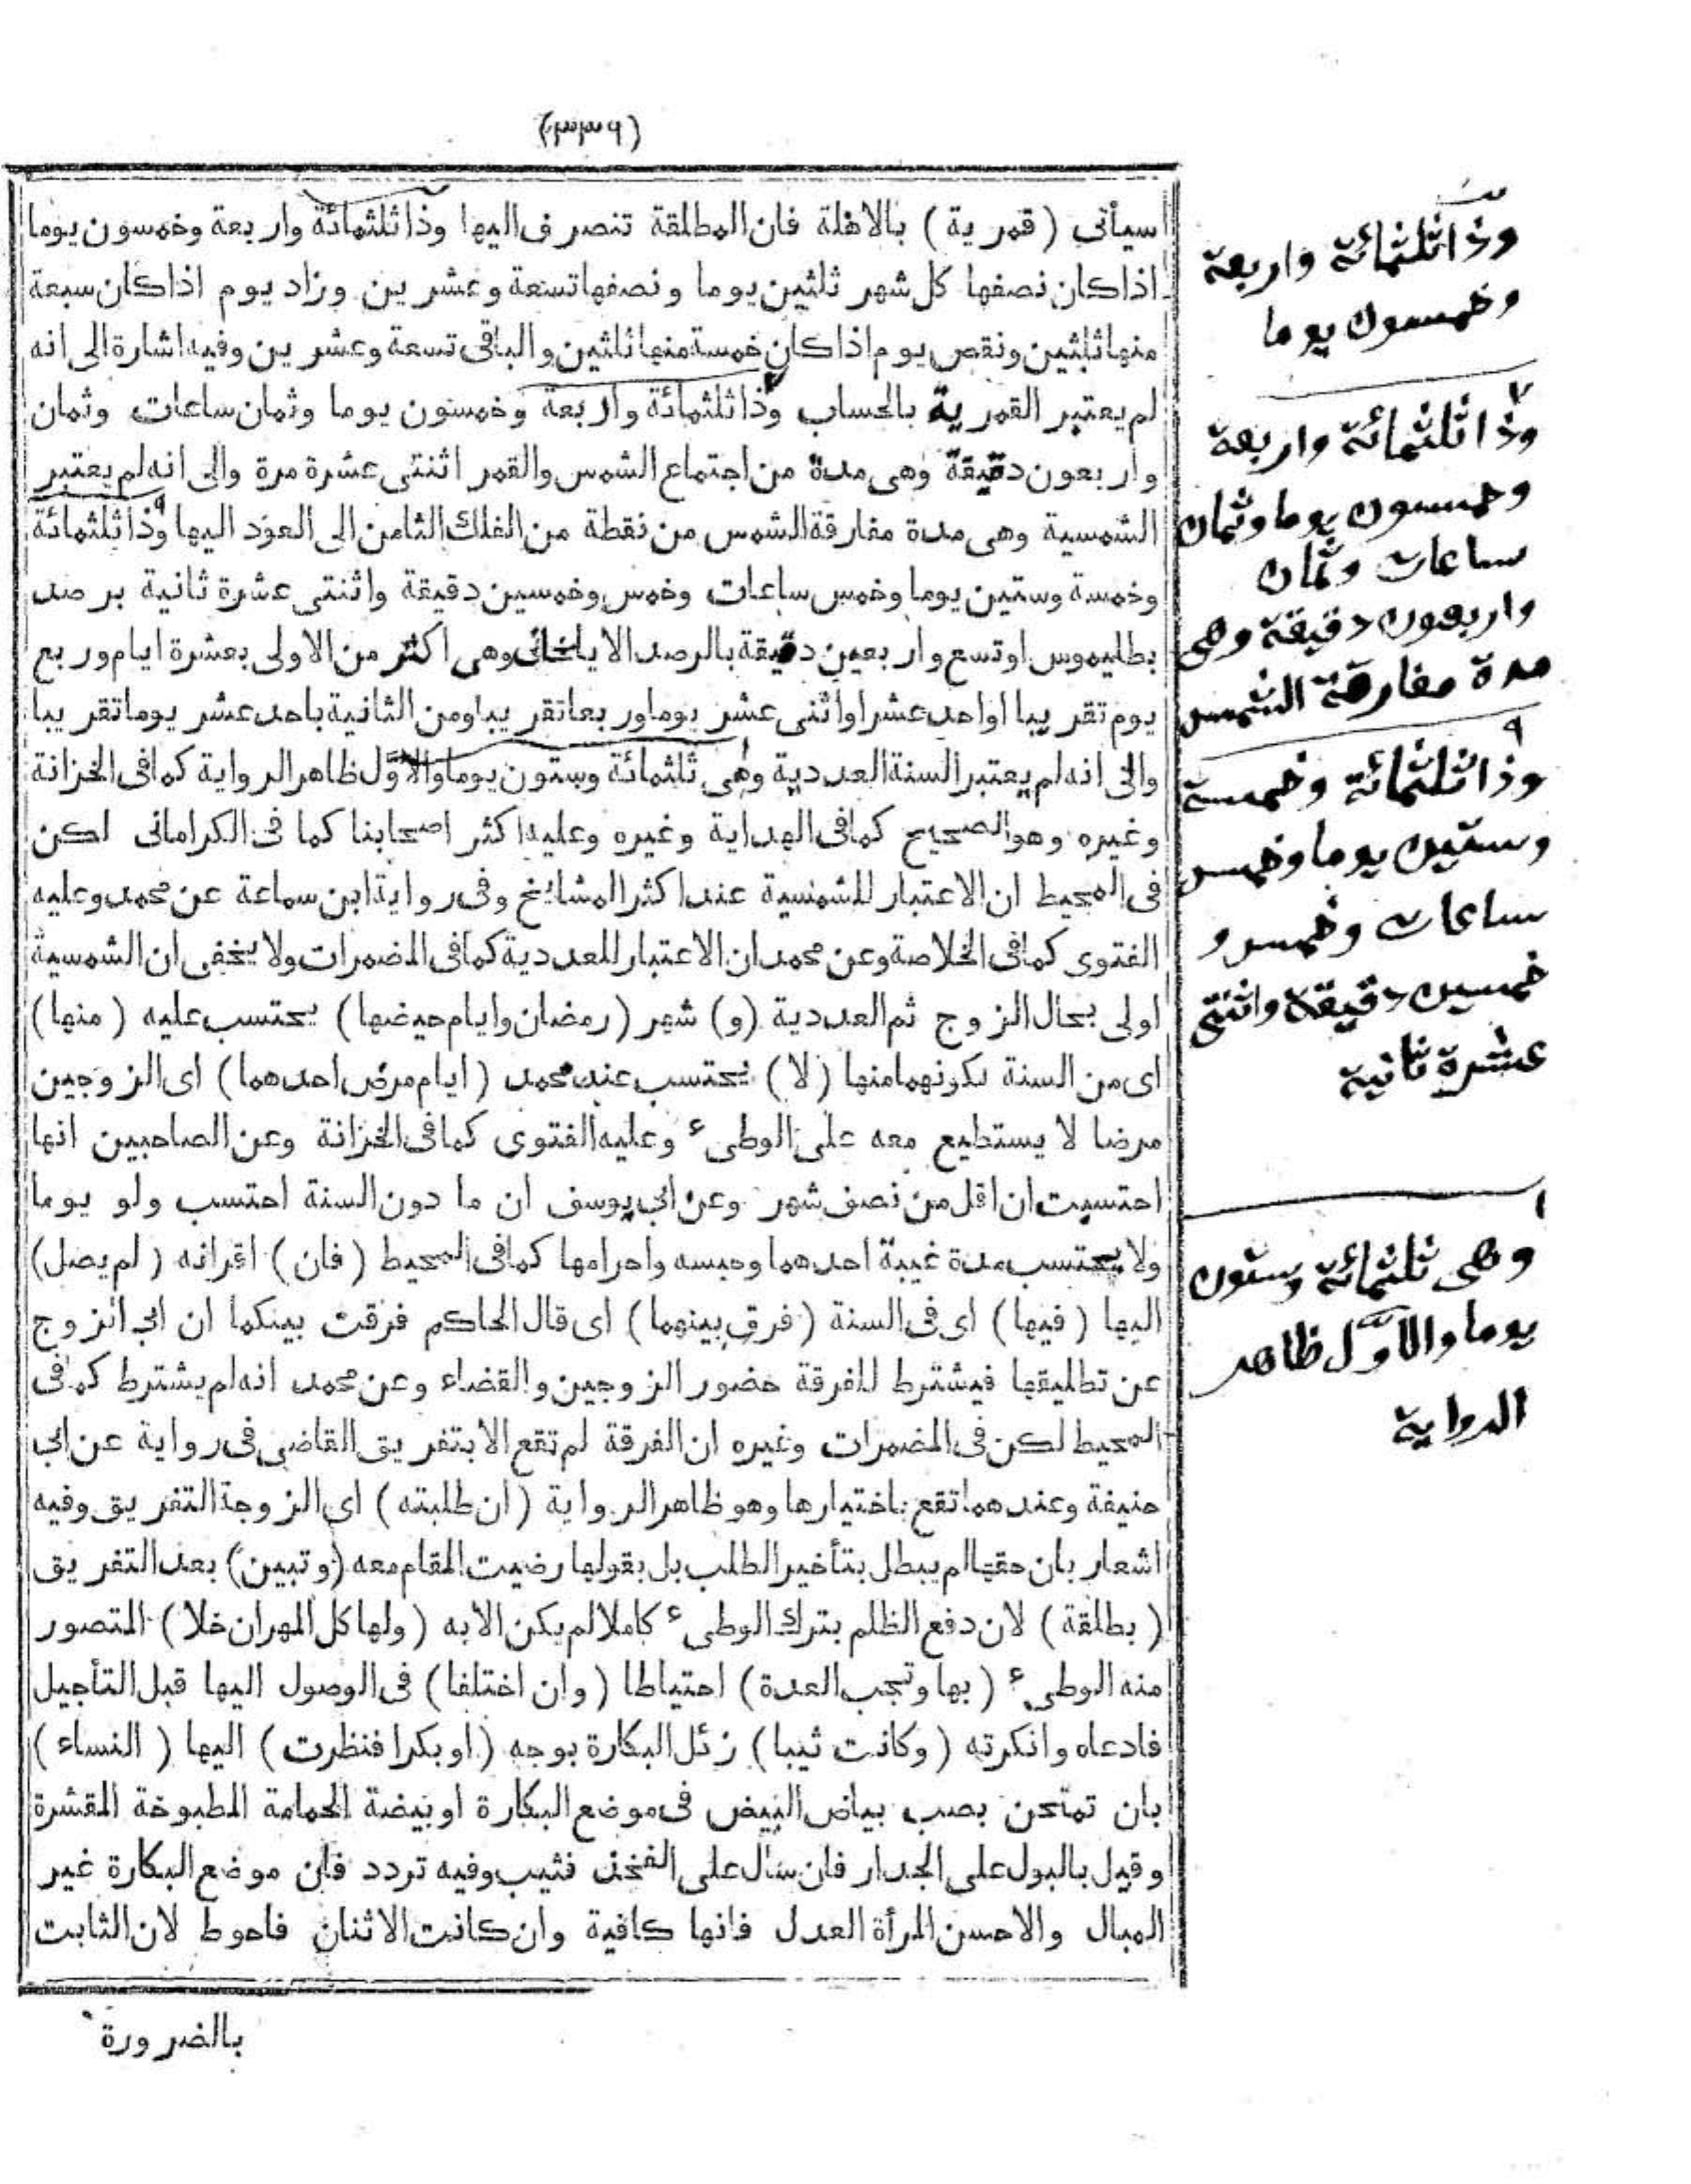 (٣٣٩)
سيأتى (قمرية) بالاهلة فان المطلقة تنصرف اليها وذا ثلثمائة واربعة وخمسون يوما
اذا كان نصفها كل شهر ثلثين يوما ونصفها تسعة وعشرين وزاد يوم اذا كان سبعة
منها ثلثين ونقص يوم اذا كان خمسة منها ثلثين والباقى تسعة وعشرين وفيه اشارة الى انه
لم يعتبر القمرية بالحساب وذا ثلثمائة واربعة وخمسون يوما وثمان ساعات وثمان
واربعون دقيقة وهى مدة من اجتماع الشمس والقمر اثنتى عشرة مرة والى انه لم يعتبر
الشمسية وهى مدة مفارقة الشمس من نقطة من الفلك الثامن الى العود اليها وذا ثلثمائة
وخمسة وستين يوما وخمس ساعات وخمس وخمسين دقيقة واثنتى عشرة ثانية برصد
بطليموس او تسع واربعين دقيقة بالرصد الايلخانى وهى اكثر من الاولى بعشرة ايام وربع
يوم تقريبا او احد عشر او اثنى عشر يوما وربعا تقريبا ومن الثانية باحد عشر يوما تقريبا
والى انه لم يعتبر السنة العددية وهى ثلثمائة وستون يوما والاوّل ظاهر الرواية كما فى الخزانة
وغيره وهو الصحيح كما فى الهداية وغيره وعليه اكثر اصحابنا كما فى الكرامانى لكن
فى المحيط ان الاعتبار للشمسية عند اكثر المشائخ وفى رواية ابن سماعة عن محمد وعليه
الفتوى كما فى الخلاصة وعن محمد ان الاعتبار للعددية كما فى المضمرات ولا يخفى ان الشمسية
اولى بحال الزوج ثم العددية (و) شهر (رمضان وايام حيضها) يحتسب عليه (منها)
اى من السنة لكونهما منها (لا) يحتسب عند محمد (ايام مرض احدهما) اى الزوجين
مرضا لا يستطيع معه على الوطىء وعليه الفتوى كما فى الخزانة وعن الصاحبين انها
احتسبت ان اقل من نصف شهر وعن ابى يوسف ان ما دون السنة احتسب ولو يوما
ولا يحتسب مدة غيبة احدهما وحبسه واحرامها كما فى المحيط (فان) اقرانه (لم يصل)
اليها (فيها) اى فى السنة (فرق بينهما) اى قال الحاكم فرقت بينكما ان ابى الزوج
عن تطليقها فيشترط للفرقة حضور الزوجين والقضاء وعن محمد انه لم يشترط كما فى
المحيط لكن فى المضمرات وغيره ان الفرقة لم تقع الا بتفريق القاضى فى رواية عن ابى
حنيفة وعندهما تقع باختيارها وهو ظاهر الرواية (ان طلبته) اى الزوجة التفريق وفيه
اشعار بان حقها لم يبطل بتأخير الطلب بل بقولها رضيت المقام معه (وتبين) بعد التفريق
(بطلقة) لان دفع الظلم بترك الوطىء كاملا لم يكن الا به (ولها كل المهر ان خلا) المتصور
منه الوطىء (بها وتجب العدة) احتياطا (وان اختلفا) فى الوصول اليها قبل التأجيل
فادعاه وانكرته (وكانت ثيبا) زئل البكارة بوجه (او بكرا فنظرت) اليها (النساء)
بان تمتحن بصب بياض البيض فى موضع البكارة او بيضة الحمامة المطبوخة المقشرة
وقيل بالبول على الجدار فان سأل على الفخذ فثيب وفيه تردد فان موضع البكارة غير
المبال والاحسن المرأة العدل فانها كافية وان كانت الاثنان فاحوط لان الثابت
بالضرورة
وذا ثلثمائة واربعة
وخمسون يوما
٧
وذا ثلثمائة واربعة
وخمسون يوما وثمان
ساعات وثمان
واربعون دقيقة وهى
مدة مفارقة الشمس
٩
وذا ثلثمائة وخمسة
وستين يوما وخمس
ساعات وخمس و
خمسين دقيقة واثنتى
عشرة ثانية
١
وهى ثلثمائة وستون
يوما والاوّل ظاهر
الرواية